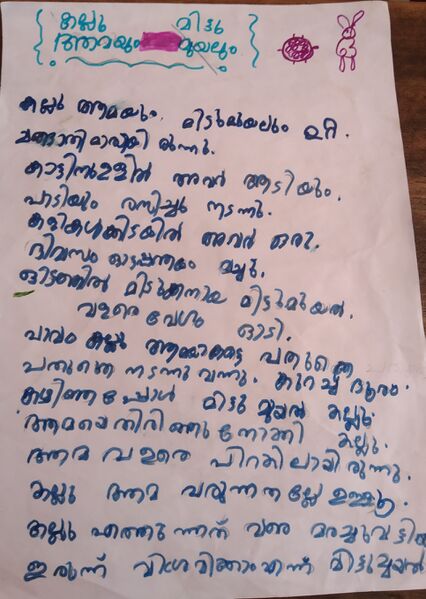 കല്ലു മിട്ടു
ആമയും മുയലും
കല്ലു ആമയും. മിട്ടുമുയലും ഉറ്റ.
ചങ്ങാതിമാരായി രുന്നു.
കാട്ടിനുള്ളിൽ അവർ ആടിയും.
പാടിയും രസിച്ചു നടന്നു.
കളികൾക്കിടയിൽ അവർ ഒരു.
ദിവസം ഓട്ടപ്പന്തയം വച്ചു.
ഓട്ടത്തിൽ മിടുക്കനായ മിട്ടുമുയൽ.
വളരെ വേഗം ഓടി.
പാവം കല്ലു ആമയാകട്ടെ പതുക്കെ
പതുക്കെ നടന്നു വന്നു. കുറച്ച് ദൂരം.
കഴിഞ്ഞപ്പോൾ മിട്ടു മുയൽ കല്ലു.
ആമയെതിരിഞ്ഞു നോക്കി കല്ലു.
ആമ വളരെ പിറകിലായിരുന്നു.
കല്ലു ആമ വരുന്നതല്ലേ ഉള്ളൂ.
കല്ലു എത്തുന്നത് വരെ മരച്ചുവട്ടിൽ
ഇരുന്ന് വിശ്രമിക്കാംഎന്ന് മിട്ടുമുയൽ